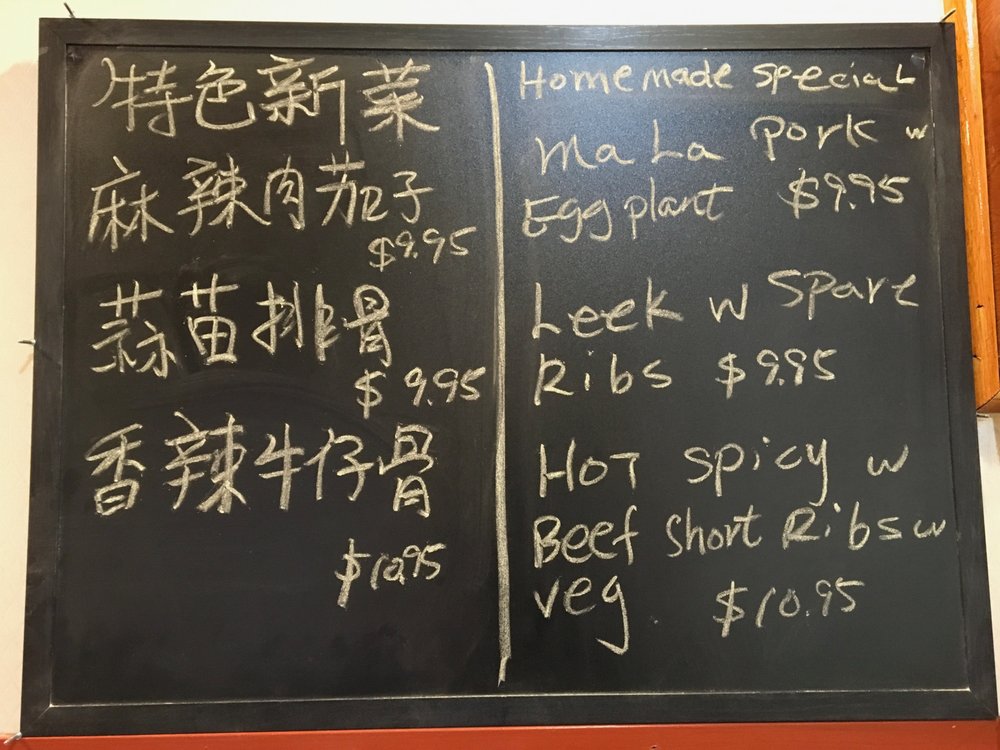 特色新菜
麻辣肉茄子
$9.95
蒜苗排骨
$9.95
香辣牛仔骨
$10.95
Homemade special
Ma La Pork w
Egg plant $9.95
Leek w Spare
Ribs $9.95
HOT spicy w
Beef short Ribs w
veg $10.95